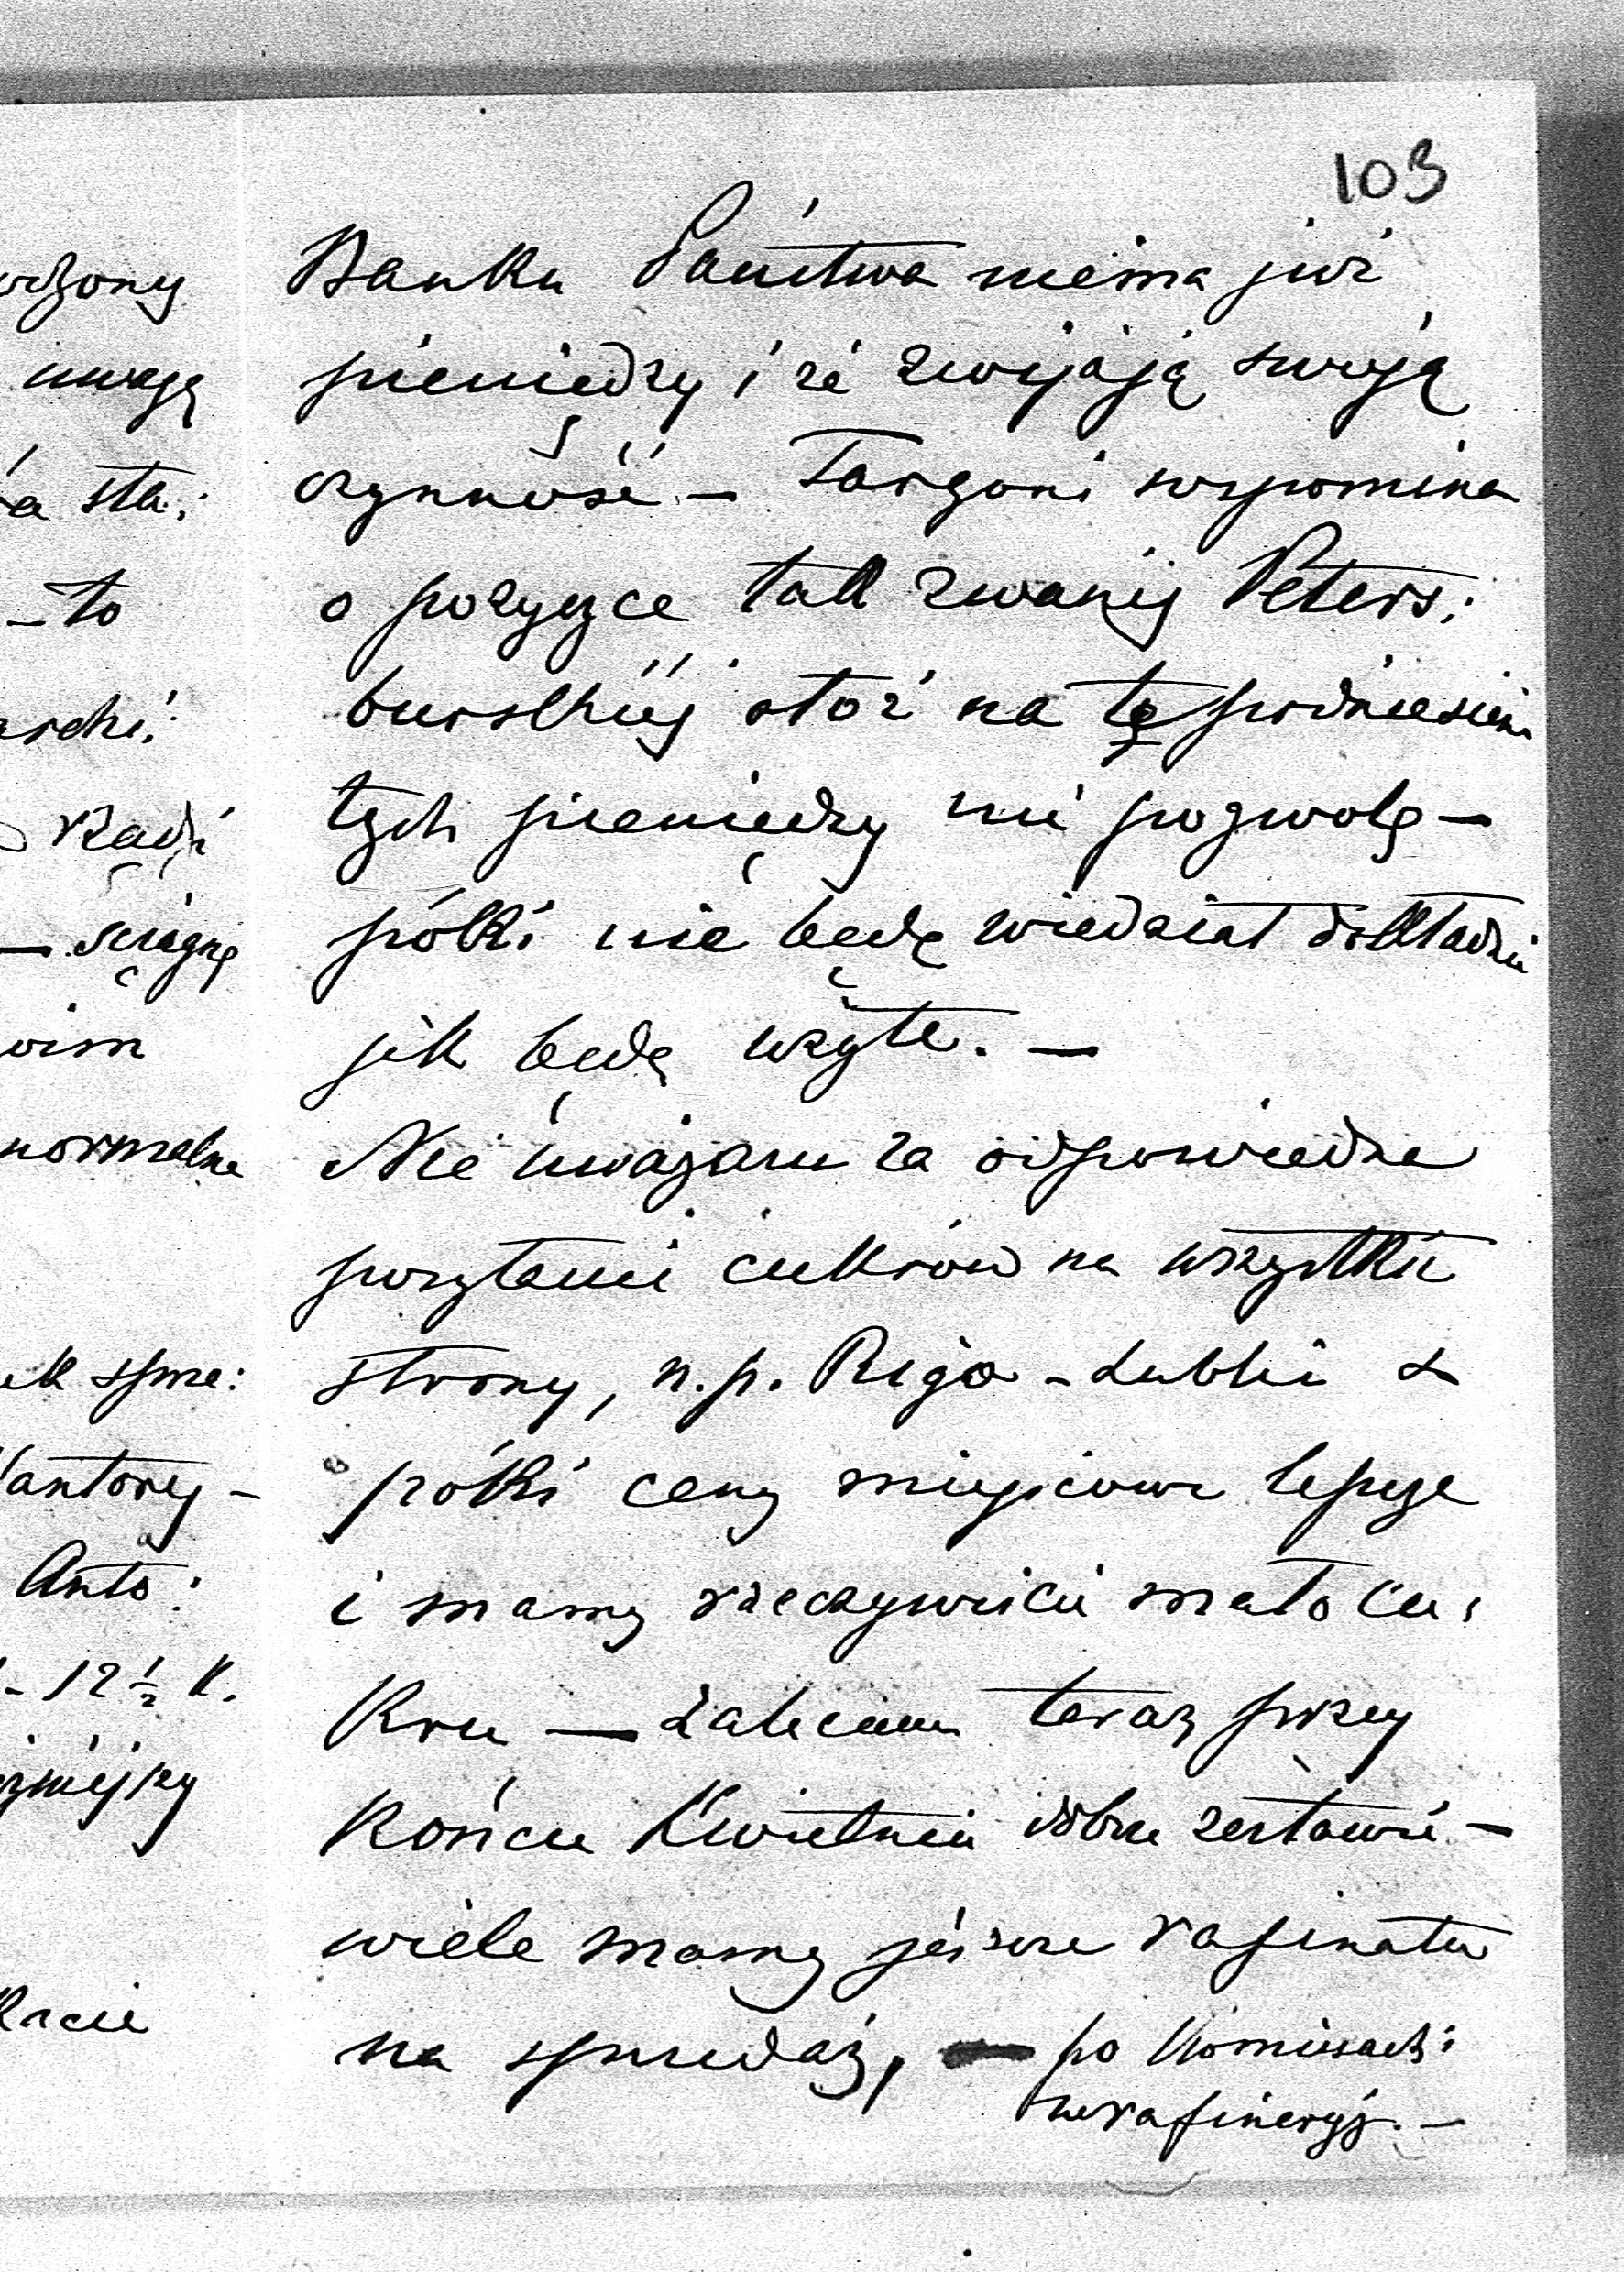 103
Banku Państwa niema już
pieniędzy i że zwijają swoją
czynność – Targoni wspomina
o pożyczce tak zwanéj Peters:
burskiéj otóż na tę podniesienie
tych pieniędzy nie pozwolę –
póki nie będę wiedział dokładnie
jak będą użyte. –
Nie uważam za odpowiedne
posyłanie cukrów na wszystkie
strony, n.p. Riga – Lublin &
póki ceny miejscowe lepsze
i mamy rzeczywiście mało cu:
kru – Zalecam teraz przy
Końcu Kwietnia dobrze zestawić –
wiele mamy jeszcze rafinatu
na sprzedaż, – po Komisach i
w rafineryj. –
uwagę
sta:
– to
Radzi
– ściągnę
normalne
Anto:
– 12 ½ K.